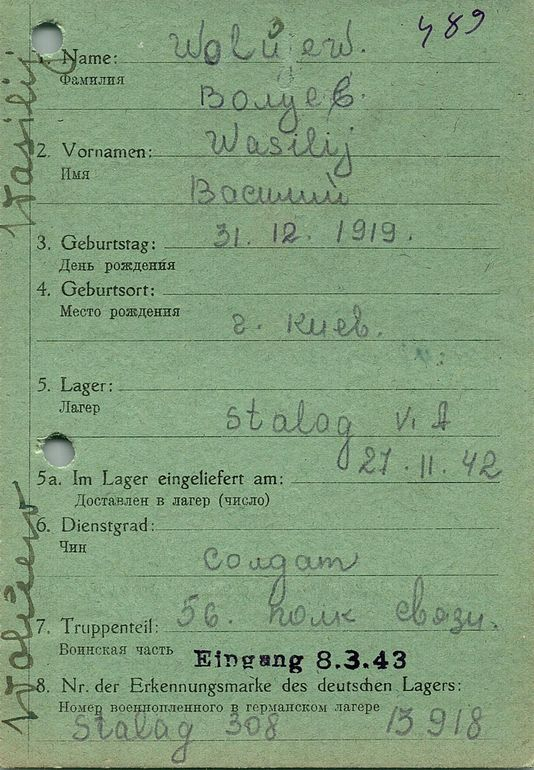 489
1. Name: Wolújew.
Фамилия
Волуев.
2. Vornamen: Wasilij
Имя
Василий
3. Geburtstag: 31. 12. 1919.
День рождения
4. Geburtsort:
Место рождения
г. Киев.
5. Lager:
Лагер
Stalag V. A
27. 11. 42
5a. Im Lager eingeliefert am:
Доставлен в лагер (число)
6. Dienstgrad:
Чин
Солдат
7. Truppenteil: 56. полк связи.
Воинская часть
Eingang 8.3.43
8. Nr. der Erkennungsmarke des deutschen Lagers:
Номер военнопленного в германском лагере
Stalag 308 13918
Wasilij